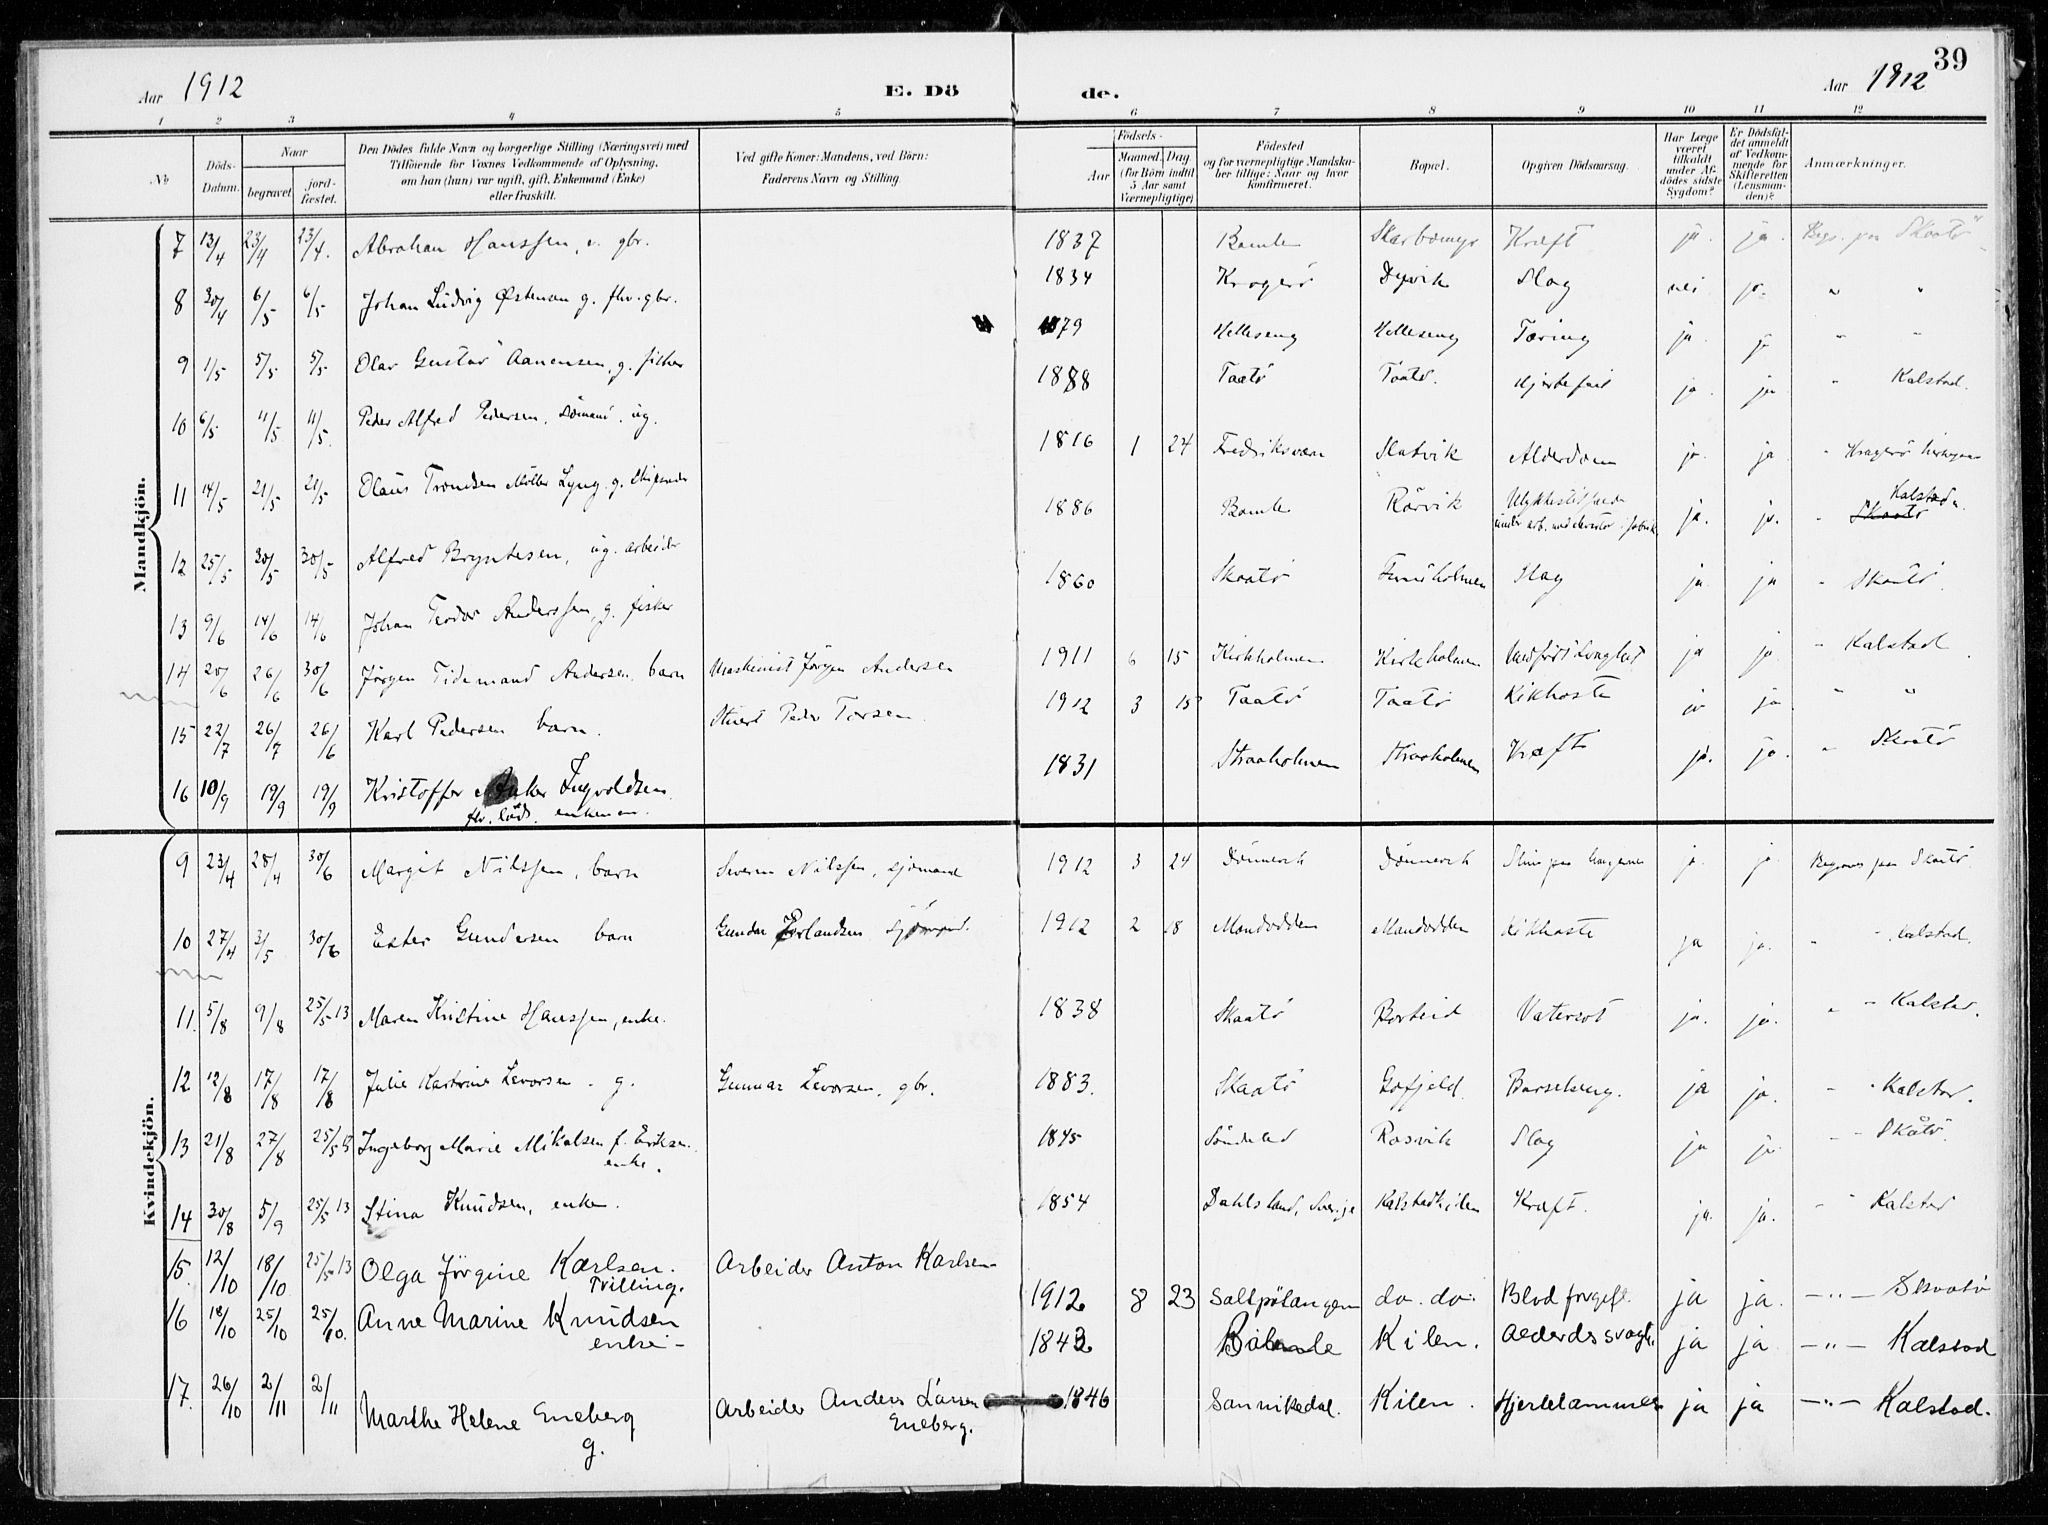 39
Aar 1912
E. Dö
de.
Aar 1912
1 2 3 4 5 6 7 8 9 10 11 12
No
Döds-Datum.
Naar
begravet.
jord-fæstet.
Den Dödes fulde Navn og borgerlige Stilling (Næringsvei) med
Tilföiende for Voxnes Vedkommende af Oplysning,
om han (hun) var ugift, gift, Enkemand (Enke)
eller fraskilt.
Ved gifte Koner: Mandens, ved Börn:
Faderens Navn og Stilling.
Födsels-
Aar
Maaned. Dag.
(for Börn indtil
5 Aar samt
Værnepligtige)
Födested
og for værnepligtige Mandska-
ber tillige: Naar og hvor
konfirmeret.
Bopæl.
Opgiven Dödsaarsag.
Har Læge
været
tilkaldt
under Af-
dödes sidste
Sygdom?
Er Dödsfal-
det anmeldt
af Vedkom-
mende for
Skifteretten
(Lensman-
den)?
Anmærkninger.
Mandkjön.
7 13/4 23/4 23/4. Abraham Hanssen, gbr. 1837 Bamle Kræft ja. ja. Begr. paa Skaatö
8 30/4 6/5 6/5 Johan Ludvig Östensen g. fhv. gbr. 1834 Kragerö Dyvik Slag nei ja. " "
9 1/5 5/5 5/5 Olav Gustav Aanensen, g. fisker 1879 Helleseng Helleseng Tæring ja. ja " "
10 6/5 11/5 11/5. Peder Alfred Pedersen, sömand, ug. 1888 Taatö Taatö. Hjertefeil ja. ja " Kalstad.
11 14/5 21/5 21/5 Olaus Trondsen Möller Lyng. g. 1816 1 24 Fredriksværn Slatvik Alderdom ja. ja " Kragerö
12 25/5 30/5 30/5 Alfred Bryntesen, ug. arbeider 1886 Bamle Rörvik Ulykkestilfælde ja. ja. " Kalstad
Skaatö
13 9/6 14/6 14/6 Johan Teodor Anderssen, g. fisker 1860 Skaatö Slag ja ja " Skaatö.
14 20/6 26/6 30/6 Jörgen Tidemand Andersen, barn Maskinist Jörgen Andersen 1911 6 15 Kirkholmen Kirkholmen Medfödt ja ja " Kalstad
15 22/7 26/7 26/6 Karl Pedersen barn. Stuert Peder Torsen. 1912 3 15 Taatö Taatö Kikhoste ja ja " "
16 10/9 19/9 19/9 Kristoffer Anker Ingvoldsen. 1831 Straaholmen Straaholmen Kræft ja. ja. " Skaatö
fhv. lods. enkem.
Kvindekjön.
9 23/4 28/4 30/6 Margit Nilssen, barn Severin Nilssen, sjömand 1912 3 24 Dönnevik Dönnevik ja. ja. Begraves paa Skaatö.
10 27/4 3/5 30/6 Ester Gundersen barn Gunder Erlandsen sjömand. 1912 2 18 Mandodden Mandodden Kikhoste ja ja. " " Kalstad.
11. 5/8 9/8 25/5 13 Maren Kristine Hanssen, enke. 1838 Skaatö Borteid Vatersot ja. ja. " " Kalstad.
12 12/8 17/8 17/8 Julie Katrine Levorsen. g. Gunnar Levorsen, gbr. 1883. Skaatö Gofjeld. Barselseng. ja ja. " " Kalstad.
13 21/8 27/8 25/5 13 Ingeborg Marie Mikalsen f. Eriksen. 1845 Söndeled Rosvik Slag ja ja " " Skåtö.
enke.
14 30/8 5/9 25/5 13 Stina Knudsen, enke. 1854 Dahlsland, Sverige Kalstadkilen Kræft. ja. ja. " Kalstad
15. 12/10 18/10 25/5 13 Olga Jörgine Karlsen. Arbeider Anton Karlsen 1912 8 23 do. do. Blodforgift. ja ja. —"— Skaatö
Tvilling.
16 18/10 25/10 25/10. Anne Marine Knudsen 1843 Kilen. Alderdssvagh. ja ja —"— Kalstad
enke —
17. 26/10 2/11 2/11 Marthe Helene Eneberg Arbeider Anders Larsen 1846 Sannikedal. Kilen. Hjertelammelse ja ja —"— Kalstad.
g. Eneberg.